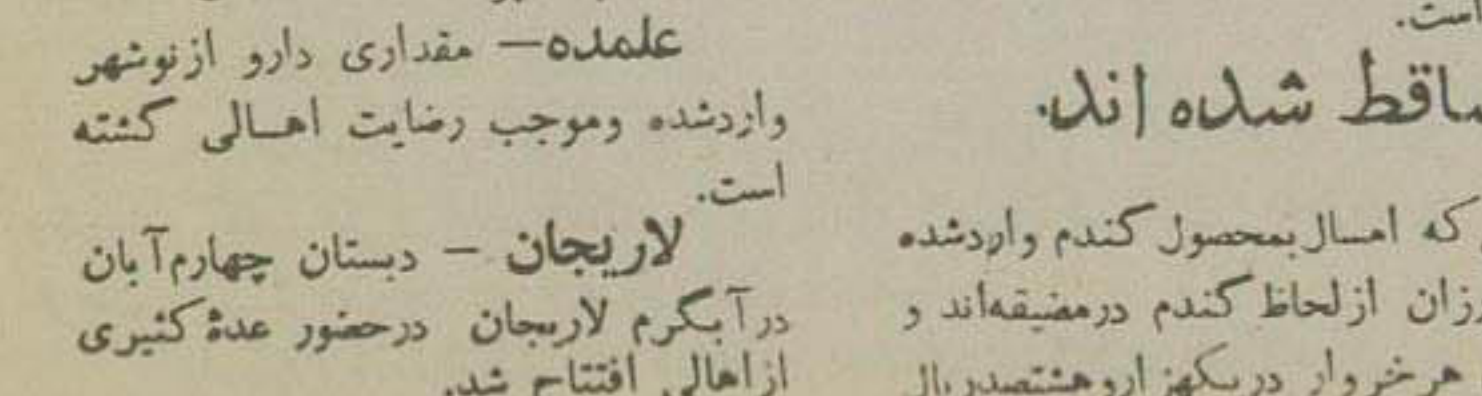 است.
ساقط شده اند.
که امسال بمحصول گندم واردشده
ازلحاظ گندم درمضیقه‌اند و
هرخروار دریکهزاروهشتصدریال
علمده— مقداری دارو ازنوشهر
واردشده وموجب رضایت اهالی گشته
است.
لاریجان — دبستان چهارم‌آبان
درآبگرم لاریجان درحضور عدهٔ کثیری
ازاهالی افتتاح شد.